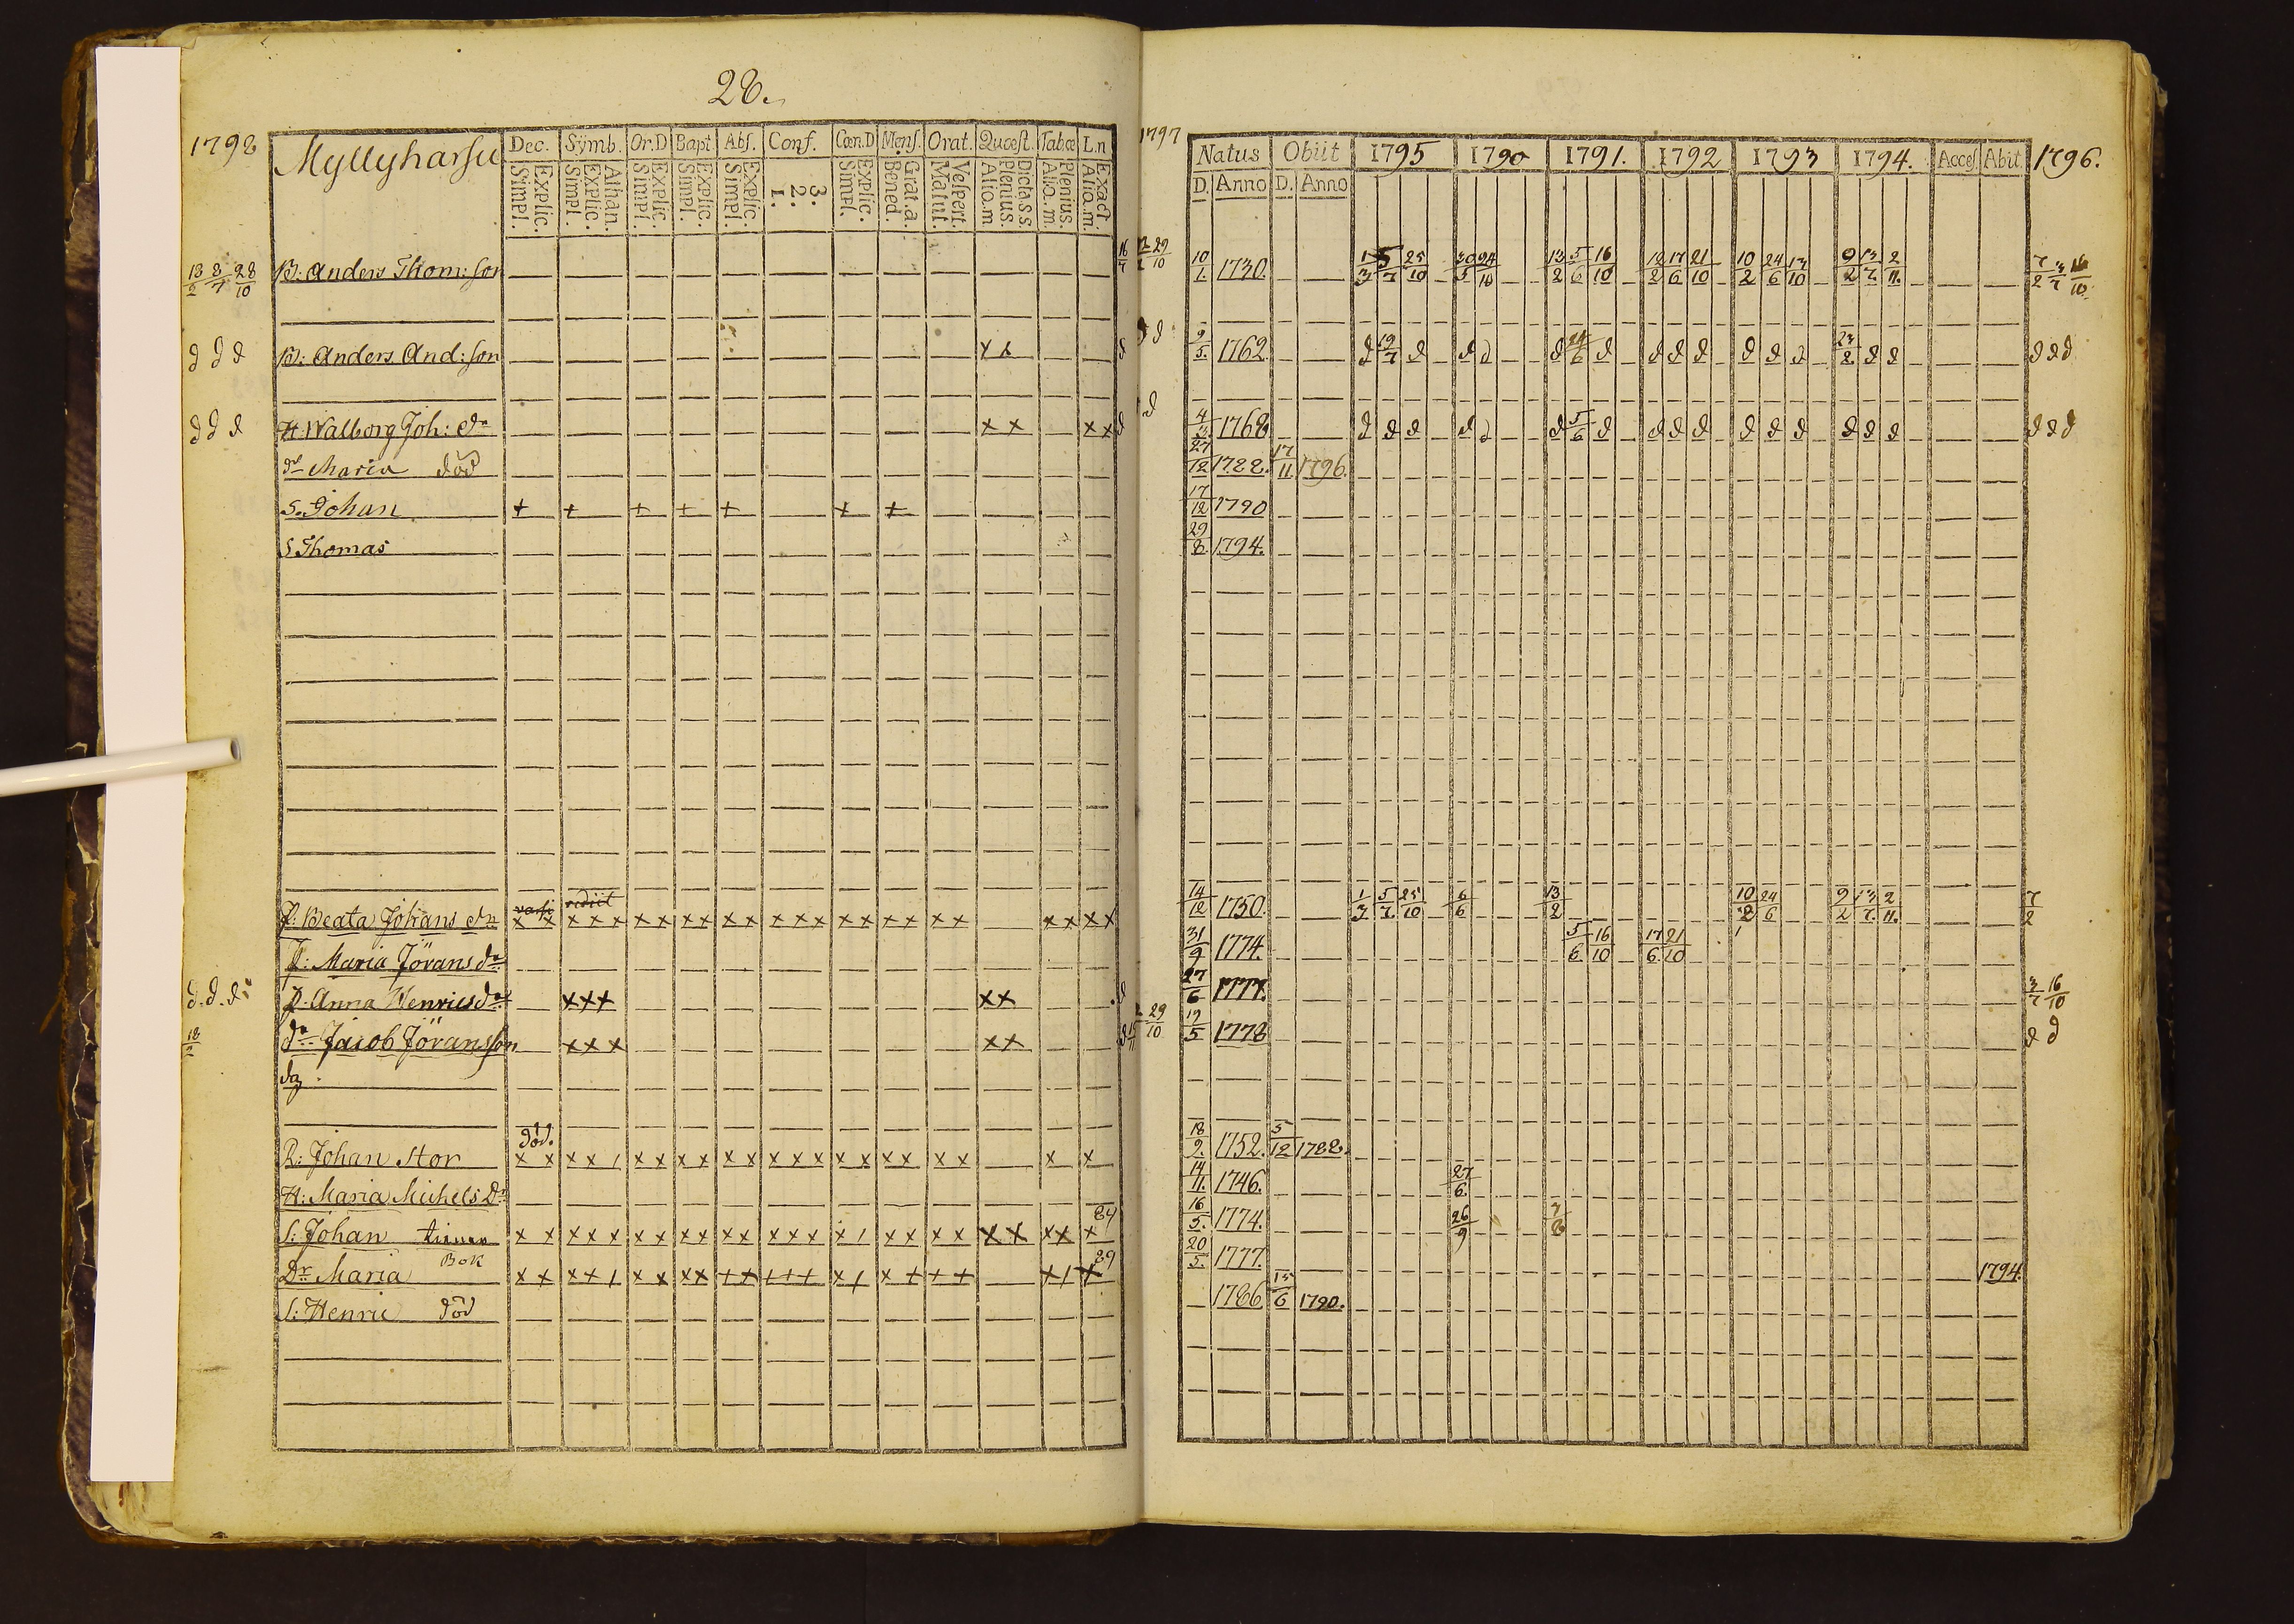 28.
1798 Myllyharju Dec. Symb. Or.D Bapt. Abs. Conf. Cœn.D Mens. Orat. Quæst. Tabæ L.n
Simpl. Explic. Simpl. Explic. Athan. Simpl. Explic. Simpl. Explic. Simpl. Explic. 1. 2. 3. Simpl. Explic. Bened. Grat.a. Matut. Vespert. Alio.m Plenius. Dictas s Alio.m. Plenius. Alio.m. Exact.
13/2 8/7 28/10 B: Anders Thom:son 16/7
d d d B: Anders And:son x x d
d d d H: Walborg Joh: dr x x x x d
dr Maria död
S. Johan + + + + + + +
S Thomas
vari rediit
P: Beata Johans dr x x x x x x x x x x x x x x x x x x x x x x x
P: Maria Jörans dr
d. d. d. P. Anna Henrics dr x x x x x d
18/2 dr Jacob Jöransson x x x x x d
död.
R: Johan Stor x x x x / x x x x x x x x x x x x x x x x x
H: Maria Michels Dr
84
S: Johan tienar x x x x x x x x x x x x x x x / x x x x x x x x x
Bok 89
Dr Maria x x x x / x x x x + + + + + x / x + + + x / x
S: Henric död
1797 Natus Obiit 1795 1790 1791. 1792 1793 1794. Acces Abit 1796.
D. Anno D. Anno
29/10 10/1. 1730. 1/3 5/7 25/10 30/5 24/10 13/2 5/6 16/10 12/2 17/6 21/10 10/2 24/6 13/10 9/2 13/7. 2/11. 7/2 3/7 16/10
d d 9/3. 1762. d 19/7 d d d d 24/6 d d d d d d d 23/2. d d d d d
d 4/3. 1768 d d d d d d 5/6 d d d d d d d d d d d d d
27/12 1788. 17/11. 1796.
17/12 1790
29/8. 1794.
14/12 1750. 1/3 5/7. 25/10 6/6 13/2 10/2 24/6 9/2 13/7. 2/11. 7/2
31/9 1774. 5/6. 16/10 17/6. 21/10
27/6 1777. 3/7 16/10
29/10 19/5 1778 d d
18/9. 1752. 5/12 1788.
14/11. 1746. 27/6.
16/5. 1774. 26/9
20/5. 1777. 1794.
1786 15/6 1790.